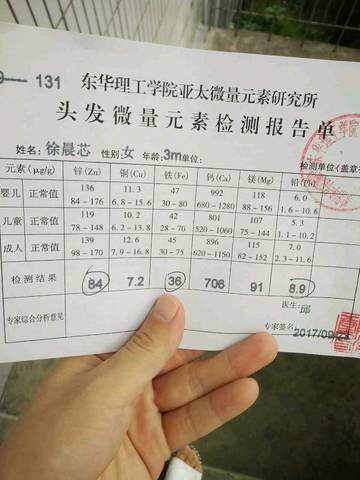 9— 131 东华理工学院亚太微量元素研究所
头发微量元素检测报告单
姓名: 徐晨芯 性别: 女 年龄: 3m 单位: 检测单位(盖章
元素(μg/g) 锌(Zn) 铜(Cu) 铁(Fe) 钙(Ca) 镁(Mg) 铅(Pb)
婴儿 正常值 136 11.3 47 992 118 6.0
84－176 6.8－15.6 30－80 680－1280 88－156 1.6－10.
儿童 正常值 119 10.2 42 801 107 5.3
78－148 6.2－13.8 28－70 520－1060 75－144 1.1－10.2
成人 正常值 139 12.6 45 896 115 7.0
98－170 7.9－16.8 30－75 620－1150 82－152 2.3－11.6
检测结果 84 7.2 36 706 91 8.9
医生: 邱
专家综合分析意见
专家签名:
2017/09/